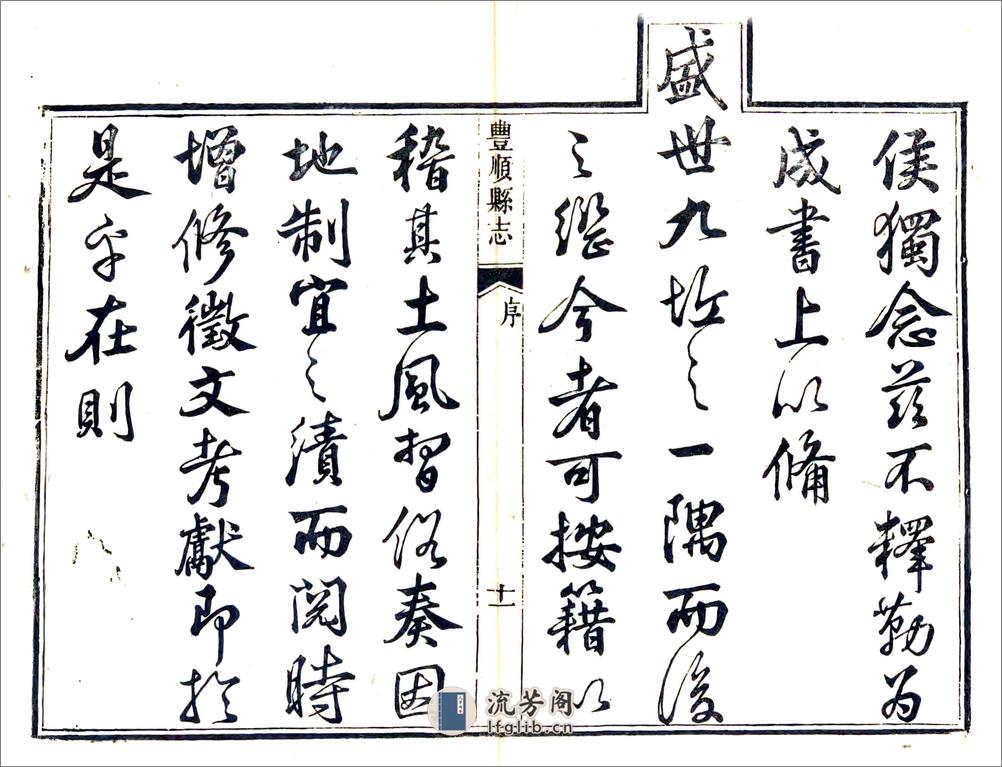 侯獨念茲不釋勒为
成書上以俻
盛世九坵之一隅而後
之繼今者可按籍以
豐順縣志
序
十一
稽其土風習俗奏因
地制宜之績而閱時
增修徵文考獻即於
是乎在則
流芳阁
lfglib.cn